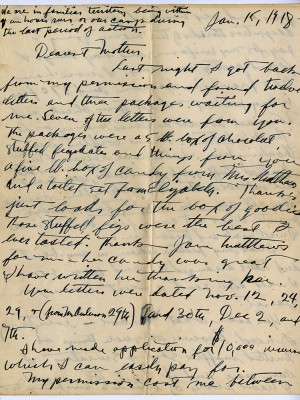 We are in familiar territory being within
an hours run or our camp during
the last period of action.
Jan. 15, 1918
Dearest Mother:
Last night I got back
from my permission and found twelve
letters and three packages waiting for
me. Seven of the letters were from you.
The packages were a 5 lb. box of chocolat,
stuffed figs dates and things from you
a five lb. box of candy from Mrs. Matthews
and a toilet set from Elizabeth. Thanks
just loads for the box of goodies
those stuffed figs were the best I
ever tasted. Thank Jane Matthews
for me her candy was great
I have written her thanking her.
Your letters were dated Nov. 12, 24
29, + (from Anderson 29th) and 30th, Dec 2, and
7th.
I have made application for $10,000 insurance
which I can easily pay for.
My permission cost me between